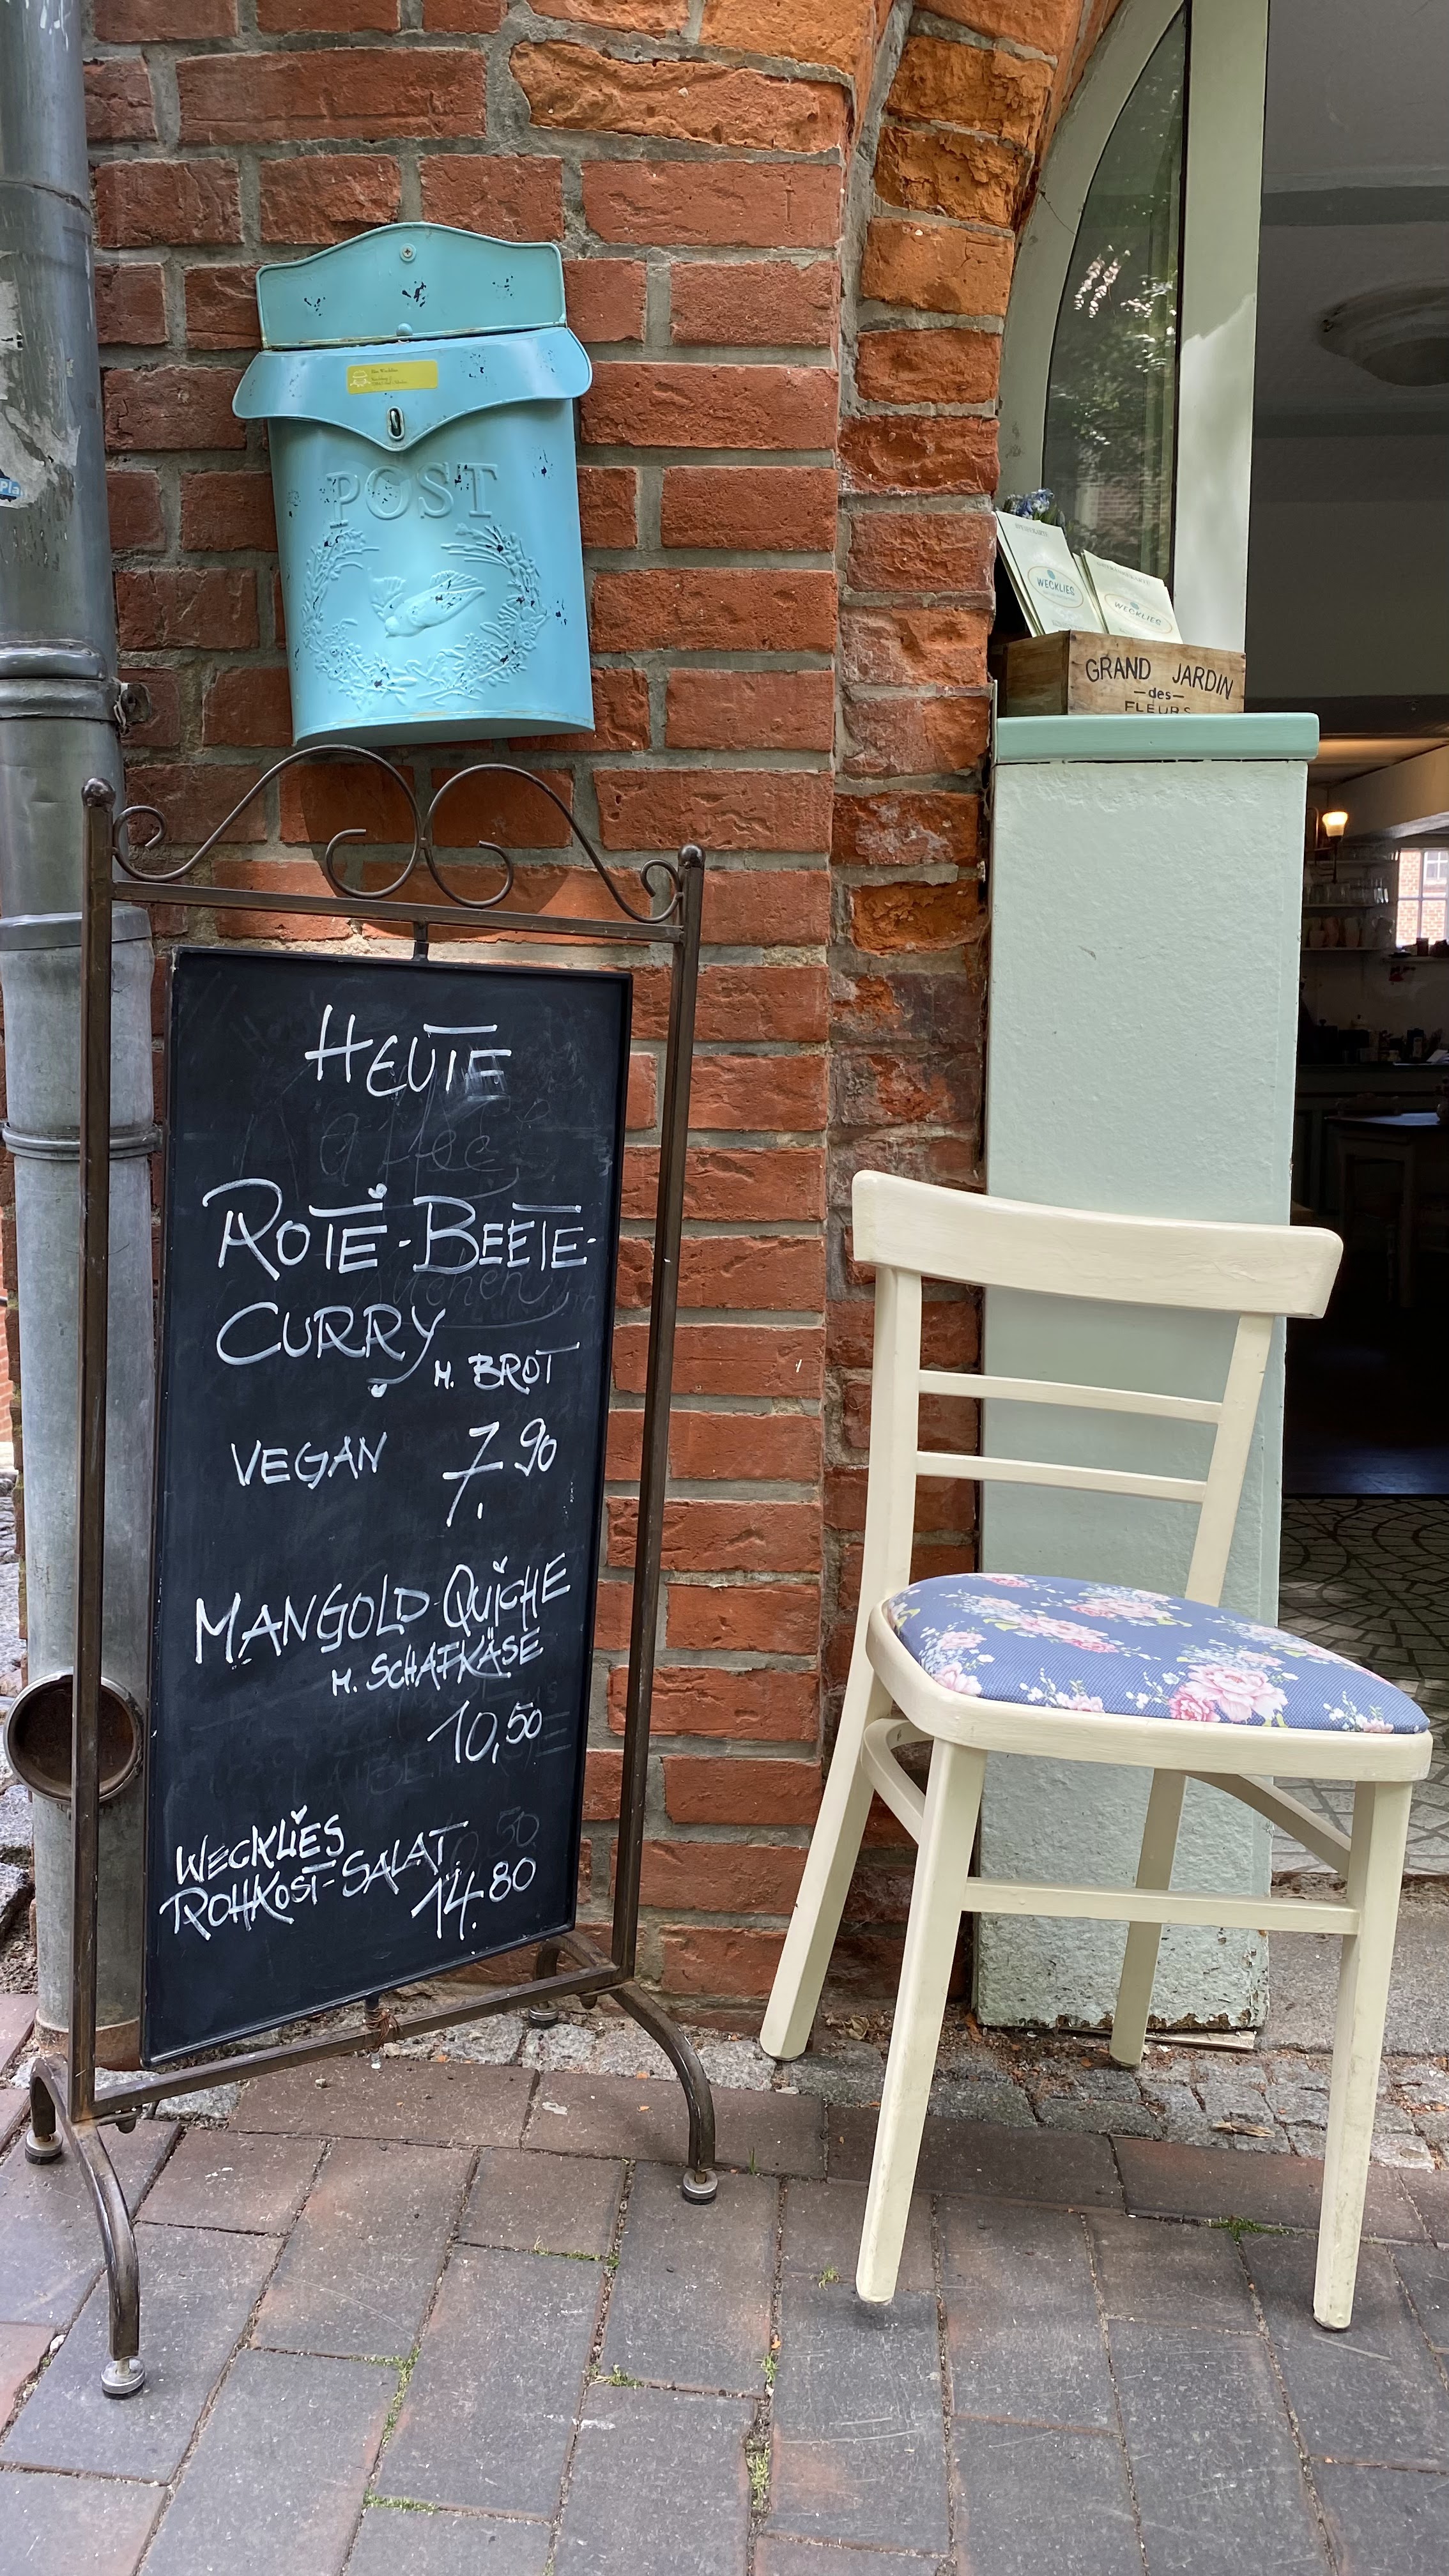 POST
WECKLIES
WECKLIES
GRAND JARDIN
—des—
FLEURS
HEUTE
ROTE-BEETE-
CURRY
M. BROT
VEGAN 7.90
MANGOLD-QUICHE
M. SCHAFKÄSE
10,50
WECKLIES
ROHKOST-SALAT
14.80